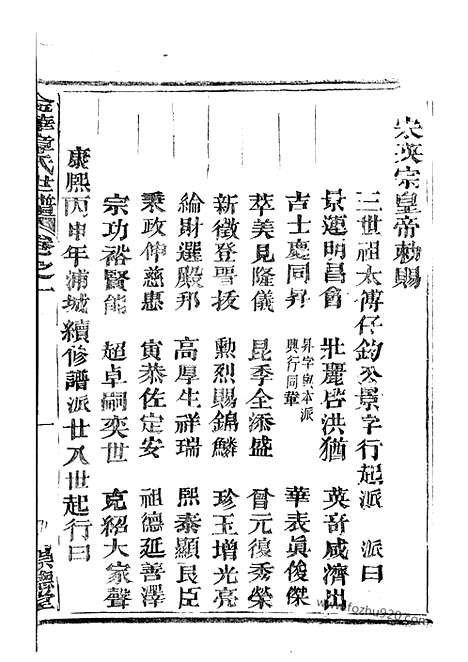 宋英宗皇帝勅賜
三世祖太傅仔鈞公景字行起派　派曰
景運明昌會　壯麗啓洪猶　英音咸濟出
吉士慶同昇　昇字與本派興行同輩　華表眞俊傑
萃美見隆儀　昆季全添盛　晉元復秀榮
新徵登聖拔　勲烈賜錦鱗　珍玉增光亮
綸財選殿邦　高厚生祥瑞　熙泰顯良臣
秉政伸慈惠　寅恭佐定安　祖德延善澤
宗功裕賢能　超卓嗣奕世　克紹大家聲
康熙丙申年浦城續修譜派廿八世起行曰
金華章氏世譜　卷之一
一
www.fozhu920.com